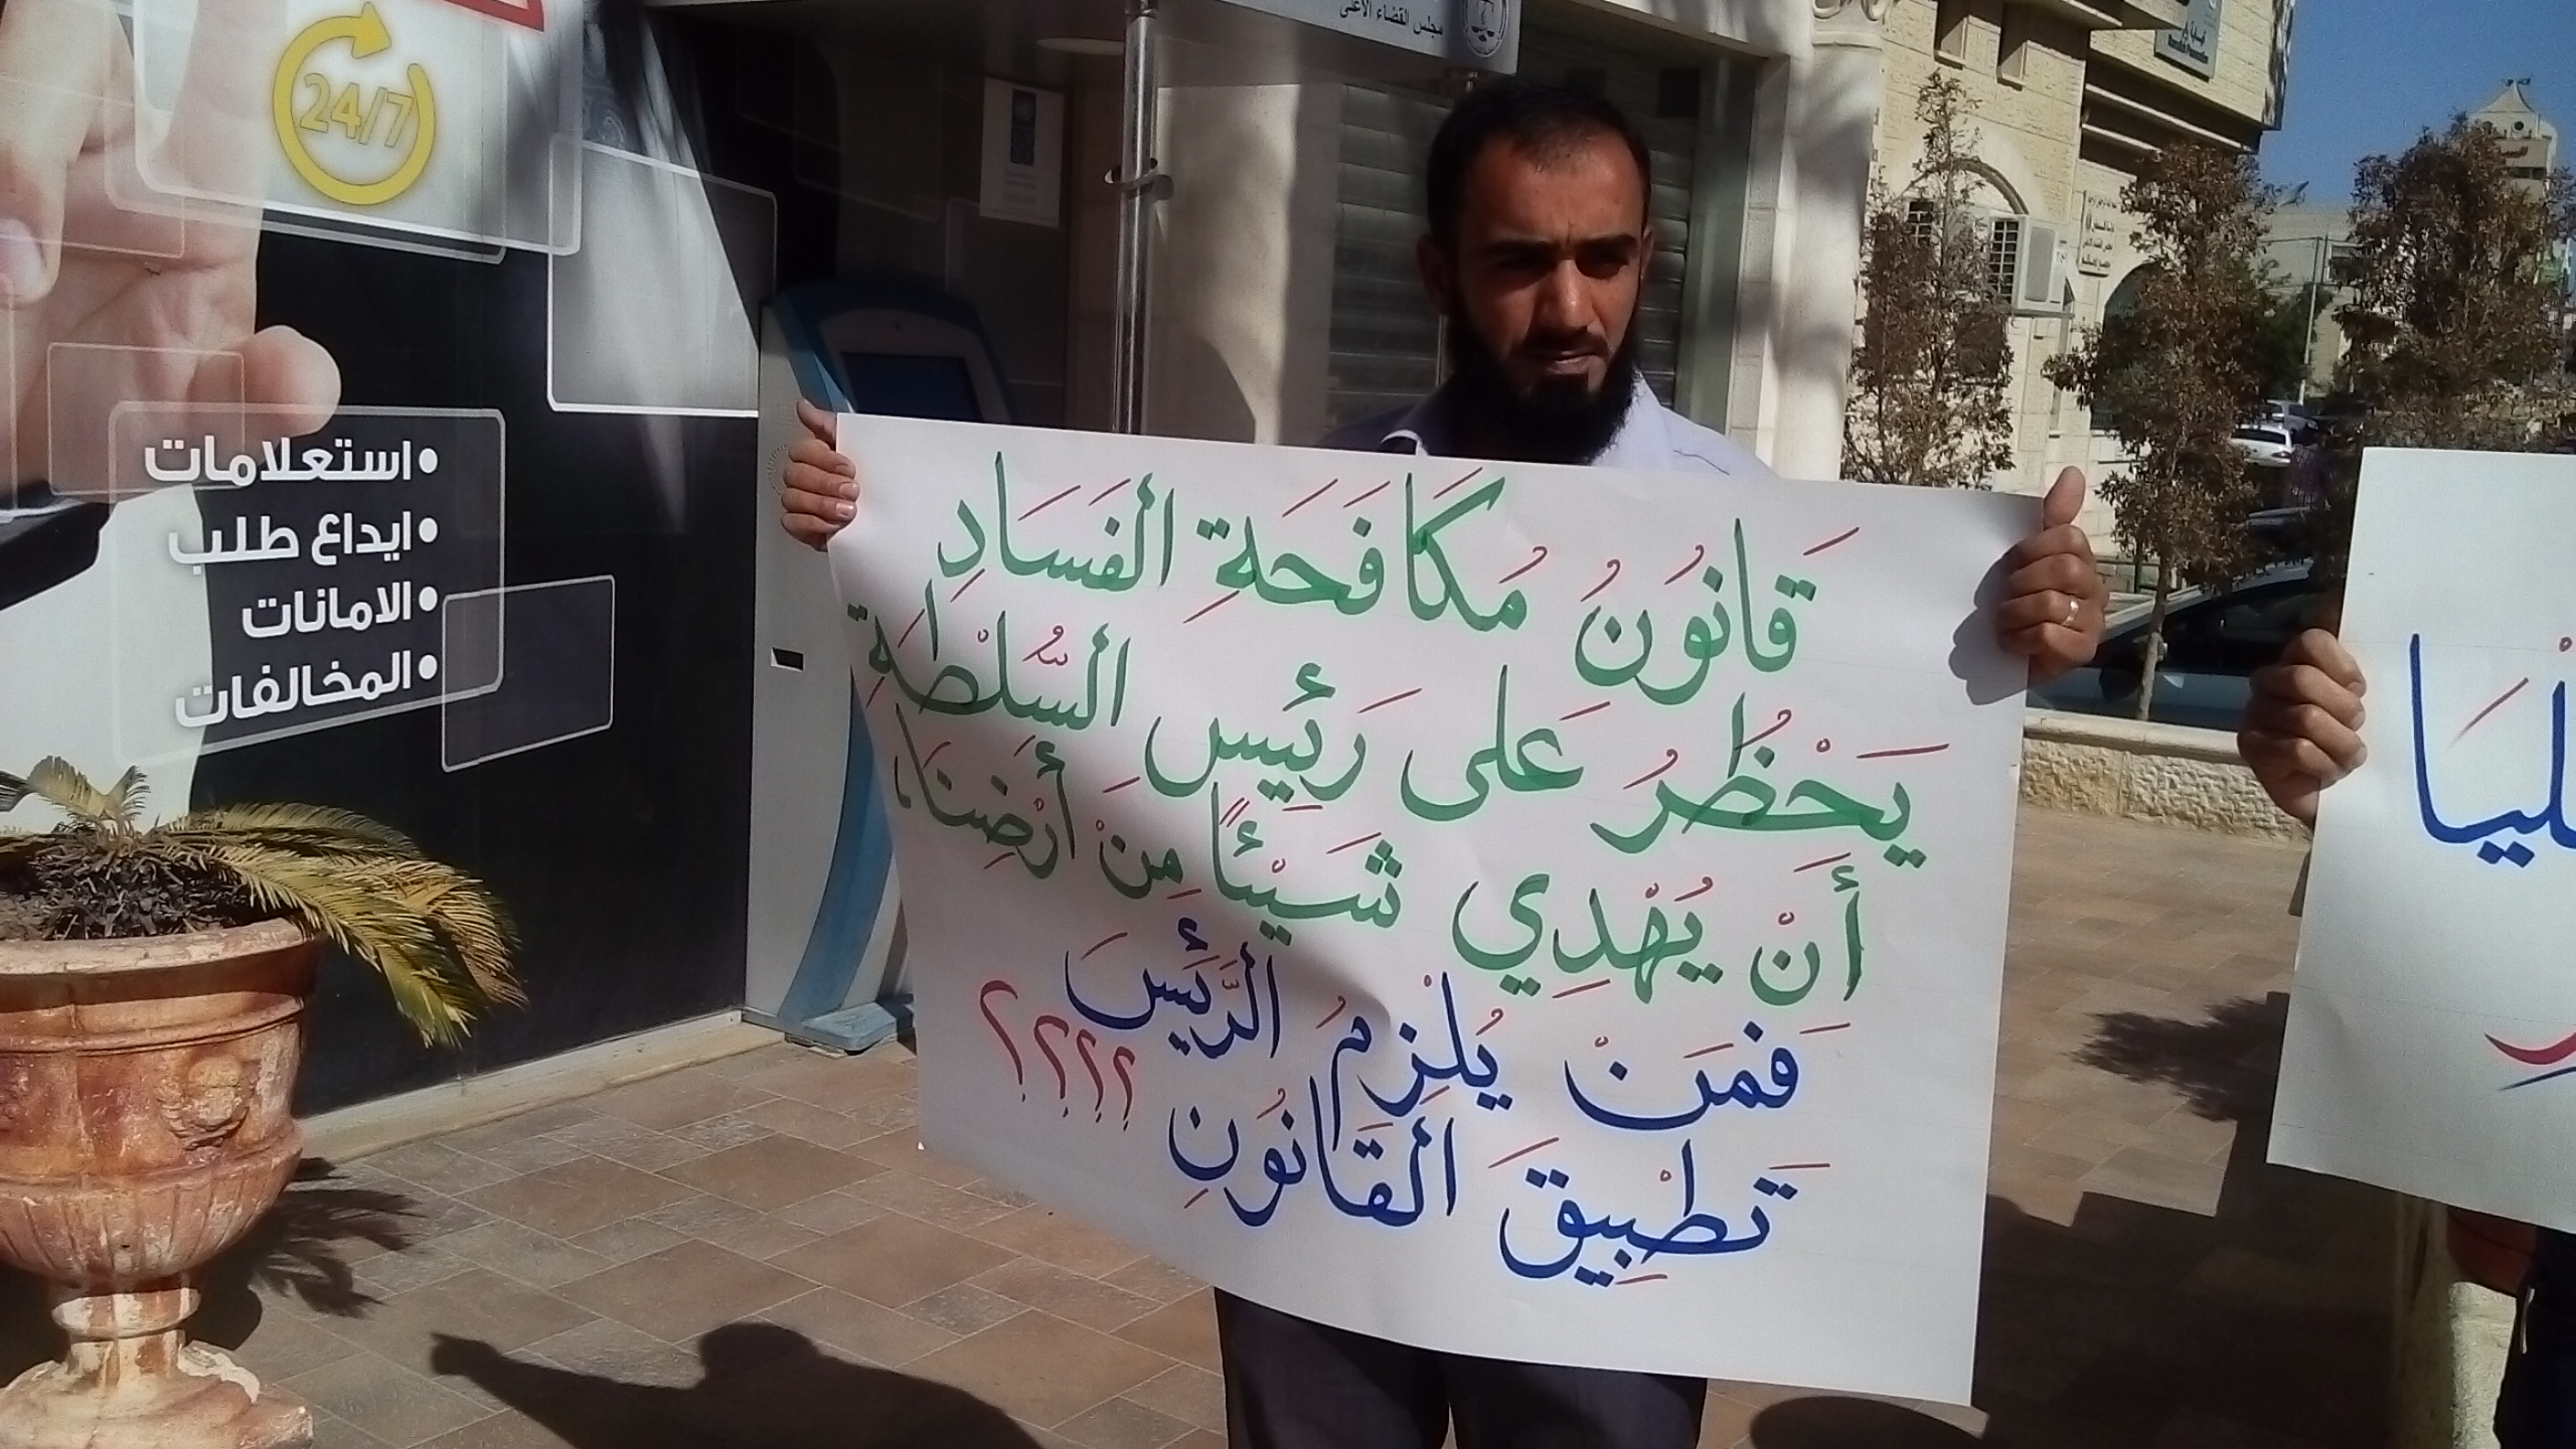 مجلس القضاء الأعلى
24/7
•استعلامات
•ايداع طلب
•الامانات
•المخالفات
قَانُونُ مُكَافَحَةِ الفَسَادِ
يَحْظُرُ عَلى رَئِيسِ السُّلْطَةِ
أَنْ يُهْدِي شَيْئًا مِنْ أَرْضِنَا،
فَمَنْ يُلْزِمُ الرَّئِيسَ
تَطْبِيقَ القَانُونِ ؟؟؟؟